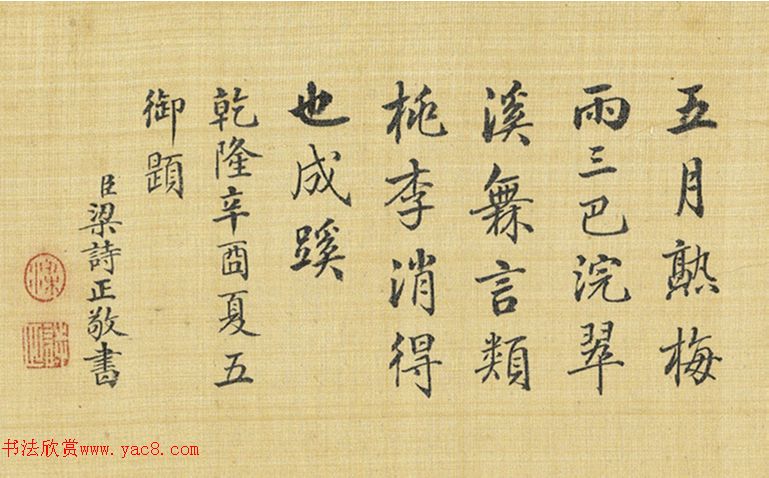 五月熟梅
雨三巴浣翠
溪無言類
桃李消得
也成蹊
乾隆辛酉夏五
御題
臣梁詩正敬書
书法欣赏www.yac8.com